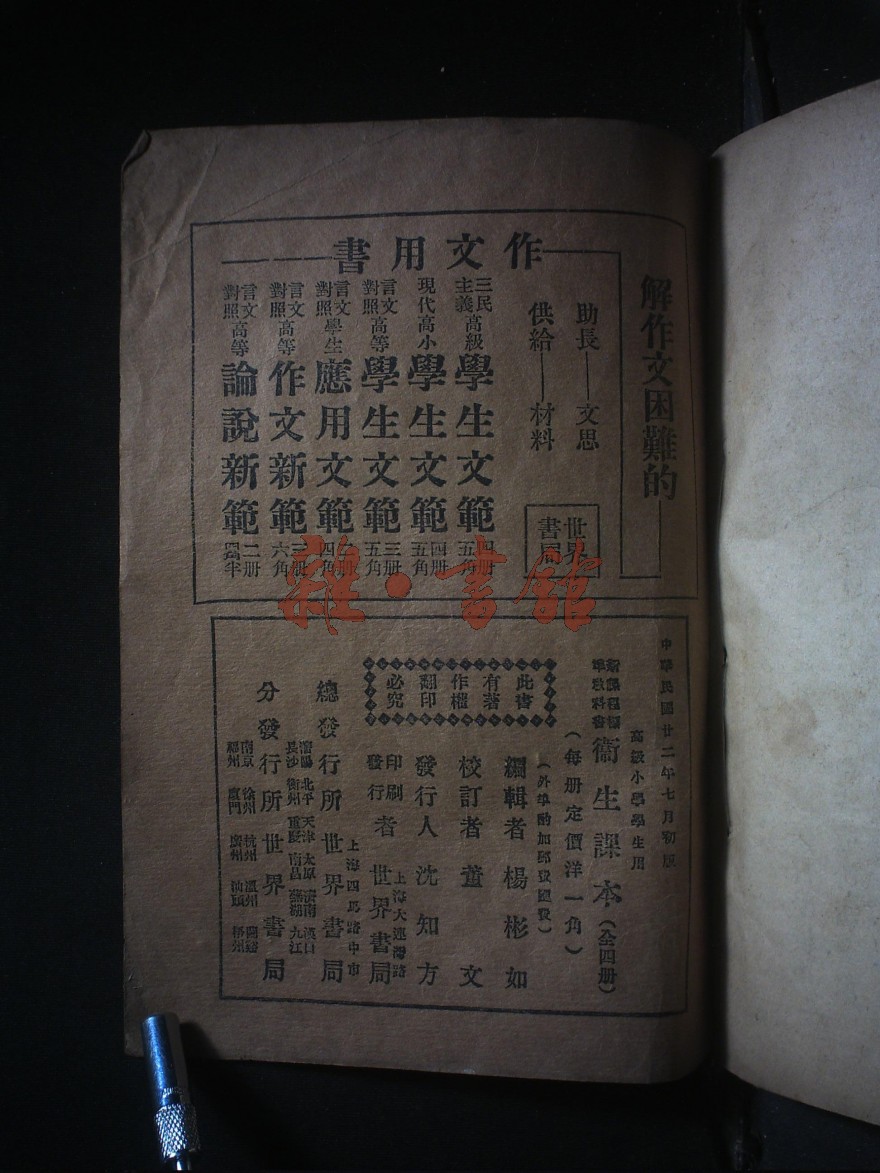 解作文困難的
作文用書
助長——文思
供給——材料
世界書局
三民主義高級學生文範四册五角
現代高小學生文範四册五角
言文對照高等學生文範三册五角
言文對照學生應用文範二册四角
言文對照高等作文新範三册六角
言文對照高等論說新範二册
雜·書館
中華民國廿二年七月初版
高級小學學生用
新課程標準教科書衞生課本(全四册)
(每册定價洋一角)
(外埠酌加郵費匯費)
此書有著作權翻印必究
編輯者楊彬如
校訂者董文
發行人沈知方
印刷發行者世界書局
上海大連灣路
上海四馬路中市
總發行所世界書局
瀋陽 北平 天津 太原 濟南 漢口
長沙 衡州 重慶 南昌 蕪湖 九江
分發行所世界書局
南京 徐州 杭州 溫州
福州 廈門 廣州 汕頭 梧州